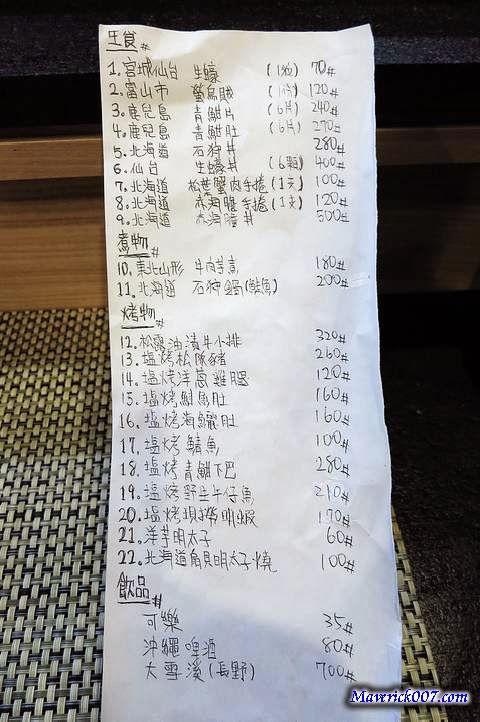 生食#
1.宮城仙台 生蠔 (1粒) 70#
2.富山市 螢烏賊 (1份) 120#
3.鹿兒島 青魽片 (6片) 240#
4.鹿兒島 青魽肚 (6片) 270#
5.北海道 石狩丼 280#
6.仙台 生蠔丼 (6顆) 400#
7.北海道 松葉蟹肉手捲(1支) 100#
8.北海道 海膽手捲(1支) 120#
9.北海道 海膽丼 500#
煮物#
10.東北山形 牛肉芋煮 180#
11.北海道 石狩鍋(鮭魚) 200#
烤物#
12.松露油漬牛小排 320#
13.塩烤松阪豬 260#
14.塩烤洋蔥雞腿 120#
15.塩烤魚肚 160#
16.塩烤海鱺肚 160#
17.塩烤鯖魚 100#
18.塩烤青魽下巴 280#
19.塩烤野生午仔魚 210#
20.塩烤明蝦 170#
21.洋芋明太子 60#
22.北海道角貝明太子燒 100#
飲品#
可樂 35#
沖繩啤酒 80#
大雪溪(長野) 700#
Mawrick007.com